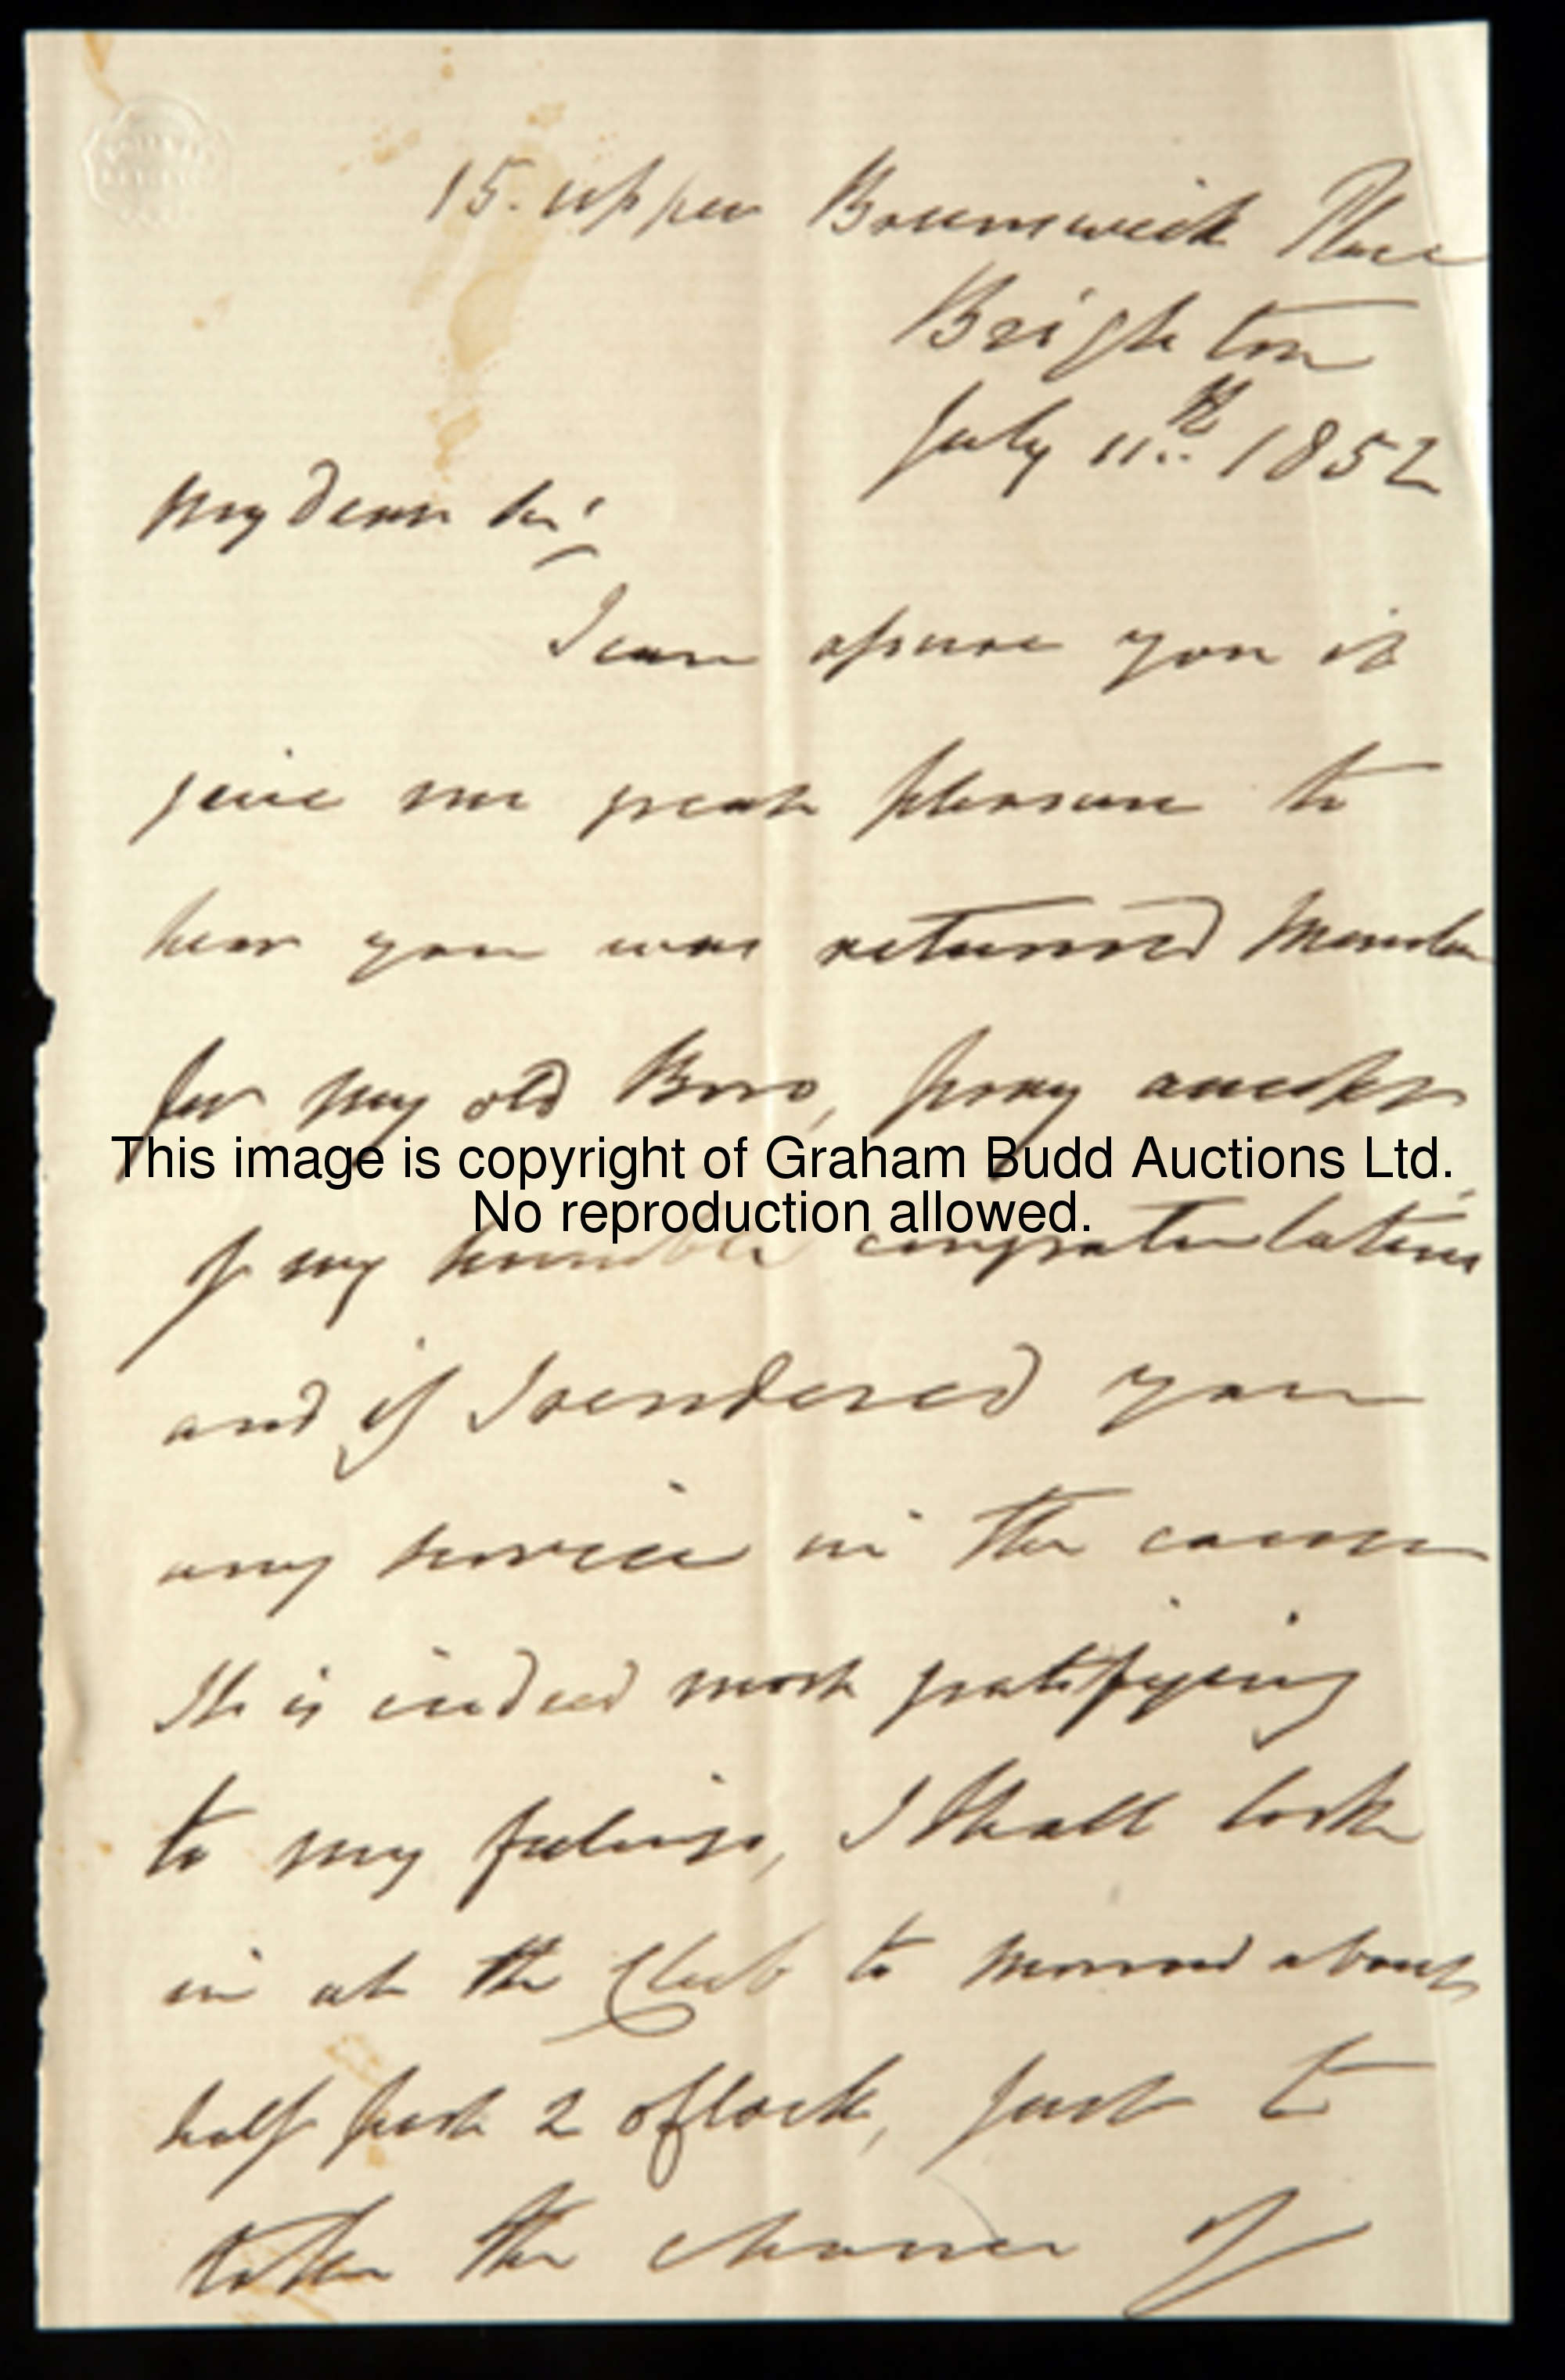 15. upper Brunswick Place
Brighton
July 11th 1852
My Dear Sir
I can assure you it
give me great pleasure to
hear you was returned Member
for my old Boro, pray accept
This image is copyright of Graham Budd Auctions Ltd.
No reproduction allowed.
of my humble congratulations
and if I rendered you
any service in the cause
It is indeed most gratifying
to my feelings, I shall look
in at the Club to morrow about
half past 2 oClock, just to
take the chance of